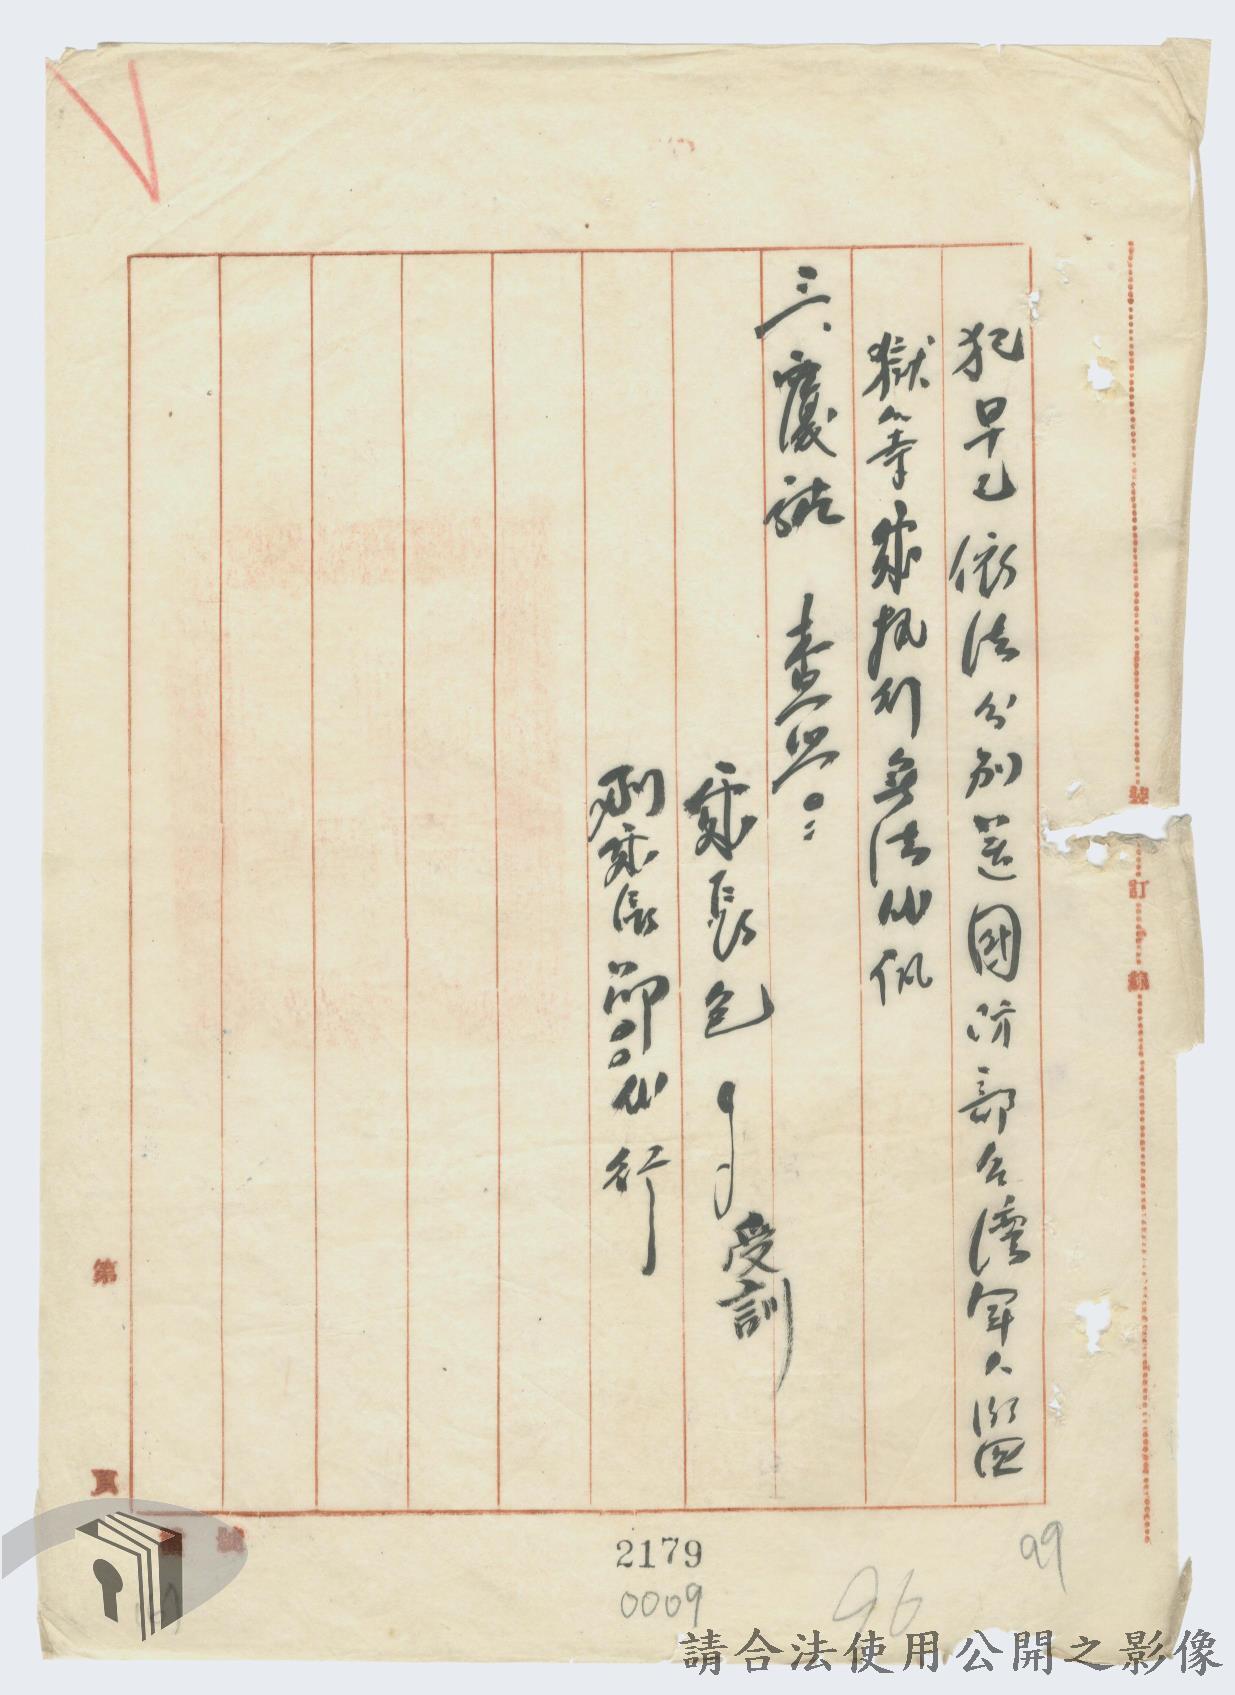 犯早已依法分別送國防部台灣軍人監
獄等處執行無法代
三、覆請 查照。
處長包
受訓
副處長
代行
裝
訂
線
第
頁
2179
0009
96
99
請合法使用公開之影像